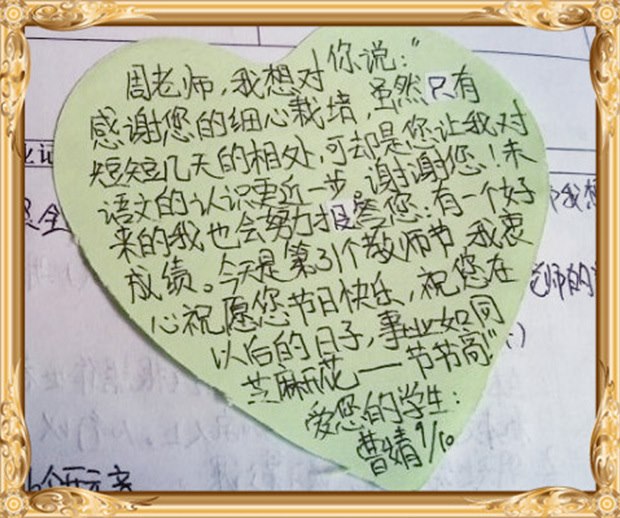 周老师，我想对你说："
感谢您的细心栽培，虽然只有
短短几天的相处，可却是您让我对
语文的认识更近一步。谢谢您！未
来的我也会努力报答您：有一个好
成绩。今天是第31个教师节，我衷
心祝愿您节日快乐，祝您在
以后的日子，事业如同
芝麻开花——节节高"
爱您的学生：
曹婧9/10